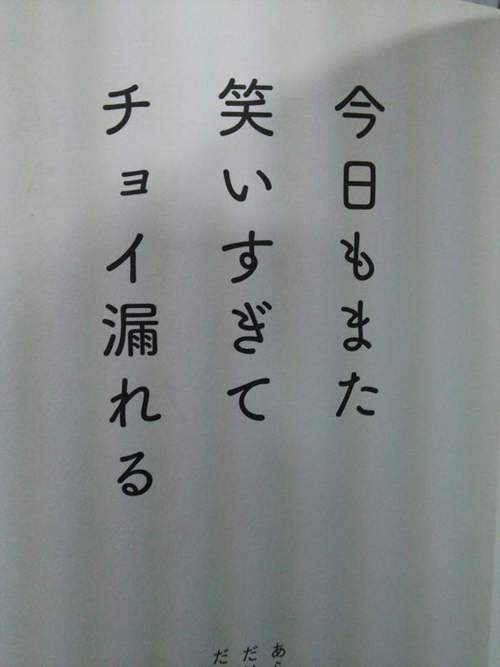 今日もまた
笑いすぎて
チョイ漏れる